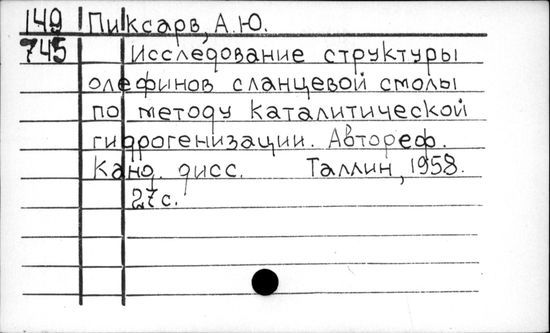 149 Пиксарв, А.Ю.
745 Исследование структуры
олефинов сланцевой смолы
по методу каталитической
гидрогенизации. Автореф.
Канд. дисс. Таллин, 1958.
27с.